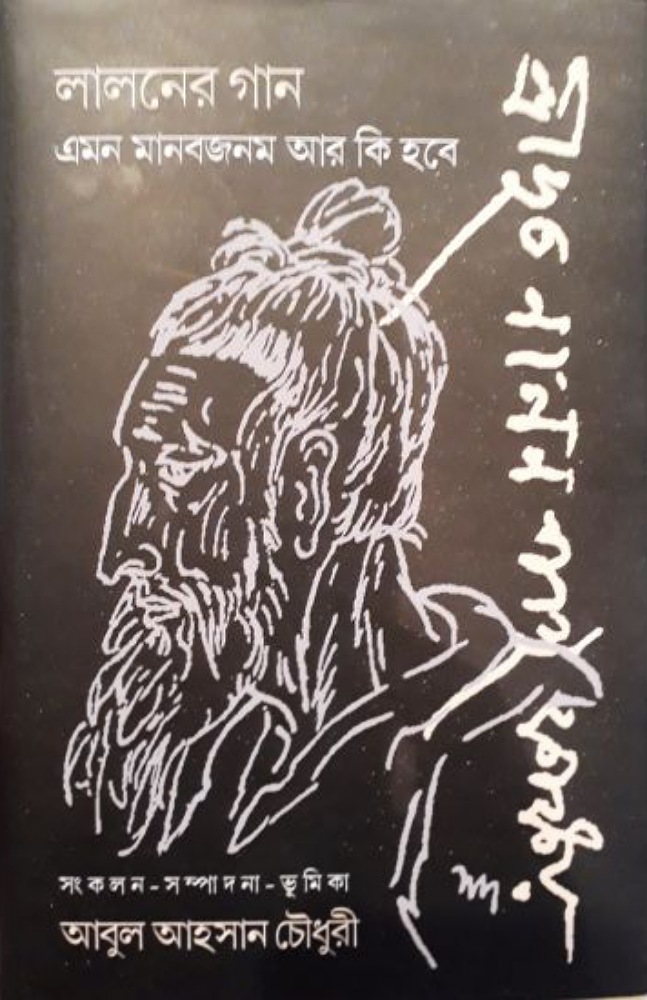 লালনের গান
এমন মানবজনম আর কি হবে
সংকলন-সম্পাদনা-ভূমিকা
আবুল আহসান চৌধুরী